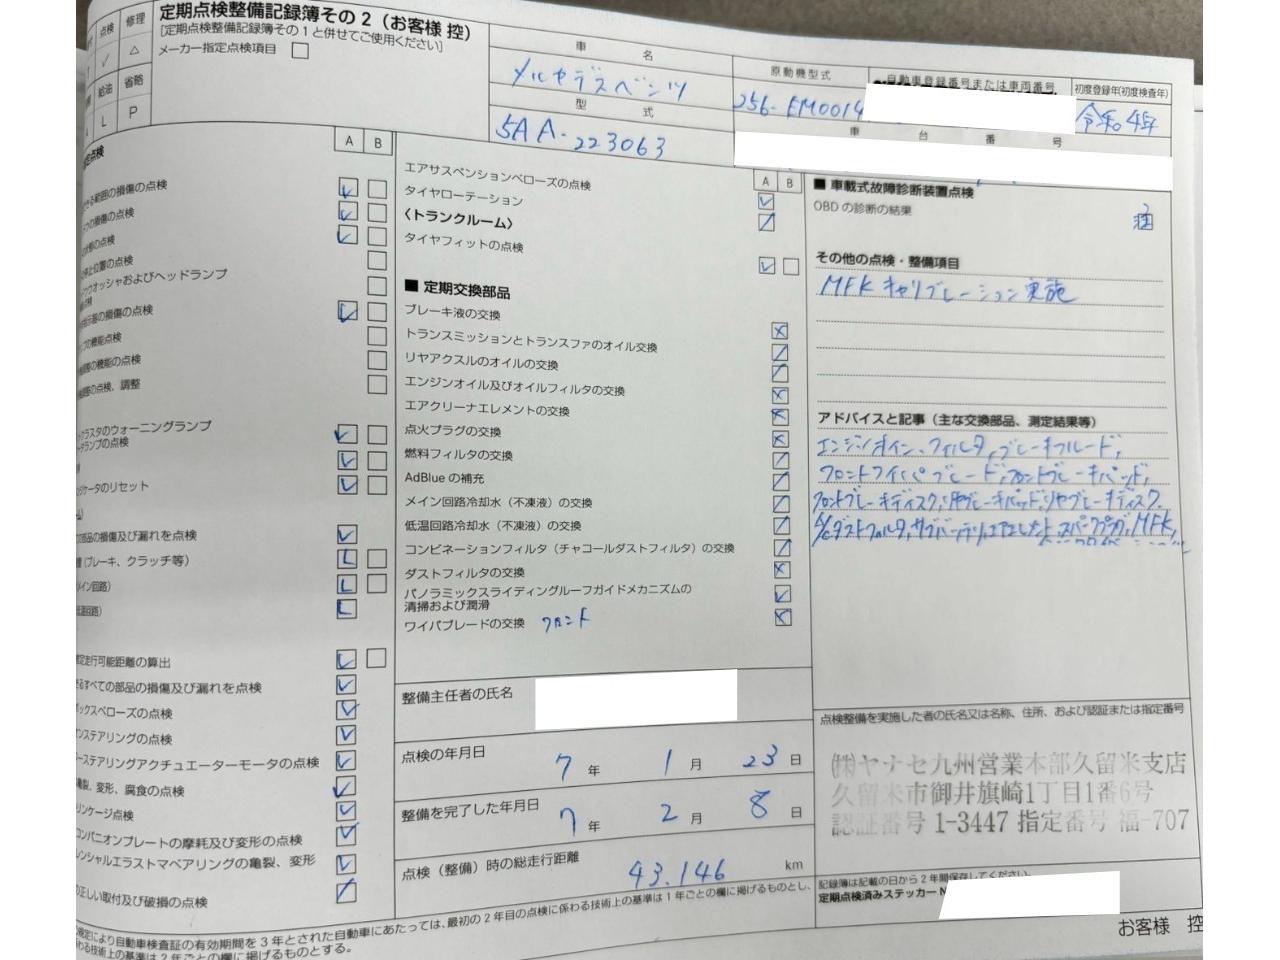 定期点検整備記録簿その2（お客様 控）
［定期点検整備記録簿その1と併せてご使用ください］
メーカー指定点検項目
点検 修理
✓ △
給油 省略
L P
車 名
メルセデスベンツ
型 式
5AA-223063
原動機型式
256-EM0014
自動車登録番号または車両番号
初度登録年(初度検査年)
令和4年
車 台 番 号
A B
範囲の損傷の点検
の損傷の点検
の点検
位置の点検
ウオッシャおよびヘッドランプ
の損傷の点検
の機能点検
の機能の点検
の点検、調整
ラスタのウォーニングランプ
ランプの点検
ケータのリセット
の部品の損傷及び漏れを点検
（ブレーキ、クラッチ等）
走行可能距離の算出
すべての部品の損傷及び漏れを点検
ックスベローズの点検
ステアリングの点検
ーステアリングアクチュエーターモータの点検
亀裂、変形、腐食の点検
リンケージ点検
コンパニオンプレートの摩耗及び変形の点検
レンシャルエラストマベアリングの亀裂、変形
の正しい取付及び破損の点検
A B
エアサスペンションベローズの点検
タイヤローテーション
〈トランクルーム〉
タイヤフィットの点検
■ 定期交換部品
ブレーキ液の交換
トランスミッションとトランスファのオイル交換
リヤアクスルのオイルの交換
エンジンオイル及びオイルフィルタの交換
エアクリーナエレメントの交換
点火プラグの交換
燃料フィルタの交換
AdBlueの補充
メイン回路冷却水（不凍液）の交換
低温回路冷却水（不凍液）の交換
コンビネーションフィルタ（チャコールダストフィルタ）の交換
ダストフィルタの交換
パノラミックスライディングルーフガイドメカニズムの
清掃および潤滑
ワイパブレードの交換 フロント
整備主任者の氏名
点検の年月日 7 年 1 月 23 日
整備を完了した年月日 7 年 2 月 8 日
点検（整備）時の総走行距離 43,146 km
■ 車載式故障診断装置点検
OBDの診断の結果
その他の点検・整備項目
MFKキャリブレーション実施
アドバイスと記事（主な交換部品、測定結果等）
エンジンオイル、フィルタ、ブレーキフルード、
フロントワイパブレード、フロントブレーキパッド、
フロントブレーキディスク、リヤブレーキパッド、リヤブレーキディスク、
A/Cダストフィルタ、サブバッテリ、エアエレメント、スパークプラグ、MFK、
点検整備を実施した者の氏名又は名称、住所、および認証または指定番号
㈱ヤナセ九州営業本部久留米支店
久留米市御井旗崎1丁目1番6号
認証番号 1-3447 指定番号 福-707
記録簿は記載の日から2年間保存してください。
定期点検済みステッカー
規定により自動車検査証の有効期間を3年とされた自動車にあたっては、最初の2年目の点検に係わる技術上の基準は1年ごとの欄に掲げるものとし、
わる技術上の基準は2年ごとの欄に掲げるものとする。
お客様 控